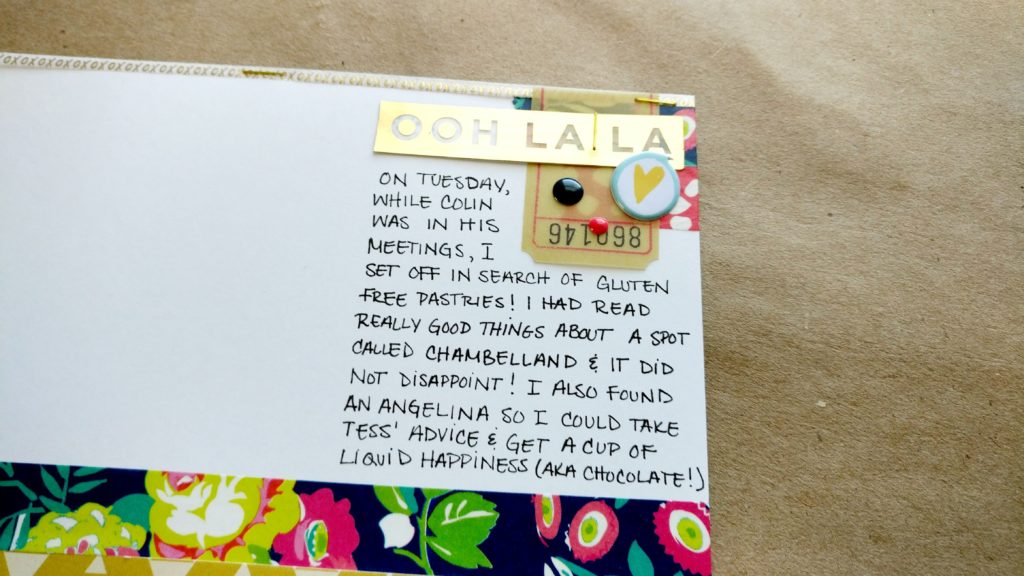 XOXOXOXOXOXOXOXOXOXOXOXOX
OOH LA LA
ON TUESDAY,
WHILE COLIN
WAS IN HIS
MEETINGS, I
860146
SET OFF IN SEARCH OF GLUTEN
FREE PASTRIES! I HAD READ
REALLY GOOD THINGS ABOUT A SPOT
CALLED CHAMBELLAND & IT DID
NOT DISAPPOINT! I ALSO FOUND
AN ANGELINA SO I COULD TAKE
TESS' ADVICE & GET A CUP OF
LIQUID HAPPINESS (AKA CHOCOLATE!)